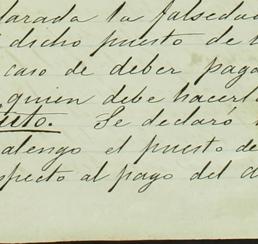 larada la falsedad
dicho puesto de
caso de deber paga
quien debe hacerl
Se declaró
alengo el puesto de
specto al pago del d